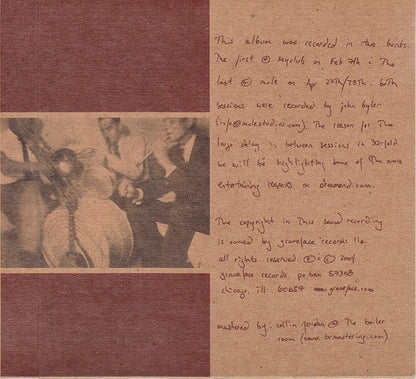 This album was recorded in two bursts.
The first @ keyclub on Feb 7th & The
last @ mole on Apr 27th/28th. both
sessions were recorded by john bgler
(info@molestudios.com). The reason for The
large delay in between sessions is
we will be highlighting some of The more
entertaining reasons on dreamend.com.
The copyright in This sound recording
is owned by graveface records llc.
all rights reserved. ℗ & © 2004
graveface records. po box
chicago, ill 60657 www.graveface.com
mastered by: collin jordan @ The boiler
room (www.trmastering.com)